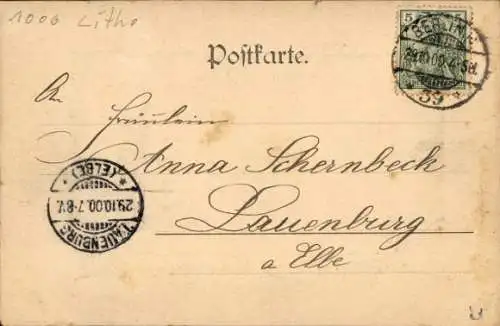 1000 Litho
5
BERLIN
28.10.00.4-5N.
39
Postkarte.
An
Fräulein
Anna Schernbeck
Lauenburg
a Elbe
LAUENBURG
29.10.00.7-8V.
* (ELBE) *